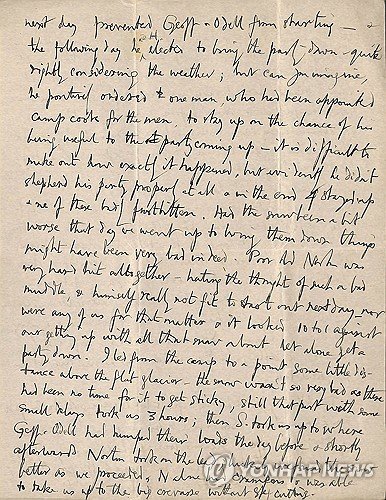 next day prevented Geoff & Odell from starting —
the following day he elected to bring the party down — quite
rightly considering the weather; but can you imagine,
he positively ordered one man who had been appointed
camp cook for the men to stay up on the chance of his
being useful to the party coming up — it is difficult to
make out how exactly it happened, but evidently he didn't
shepherd his party properly at all & in the end 4 stayed up
& one of these badly frostbitten. Had the snow been a bit
worse that day we went up to bring them down things
might have been very bad indeed. Poor old Norton was
very hard hit altogether — hating the thought of such a bad
muddle, & himself really not fit to start out next day, nor
were any of us for that matter & it looked 10 to 1 against
our getting up with all that snow about let alone get a
party down. I led from the camp to a point some little dis-
tance above the flat glacier — the snow wasn't so very bad as there
had been no time for it to get sticky, still that part with some
small delays took us 3 hours; then S. took us up to where
Geoff & Odell had dumped their loads the day before & shortly
afterwards Norton took on the lead
better as we proceeded, N alone in crampons & was able
to take us up to the big crevasse without step cutting.
YONHAP NEWS